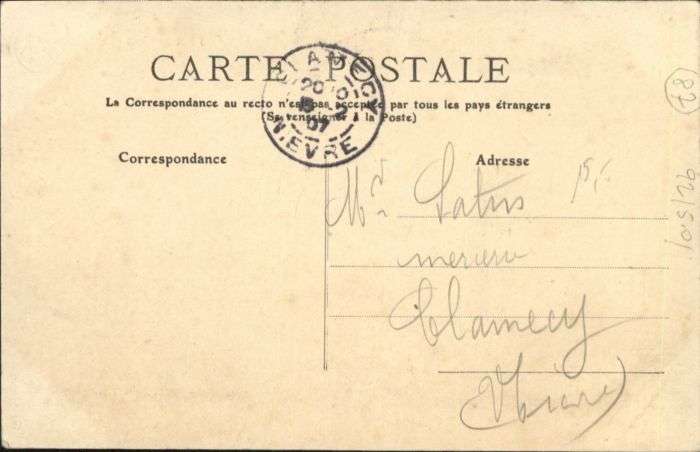 CARTE POSTALE
La Correspondance au recto n'est pas acceptée par tous les pays étrangers
(Se renseigner à la Poste)
CLAMECY
20
15 -2
07
NIEVRE
Correspondance
Adresse
15,-
Clamecy
(Nièvre)
58